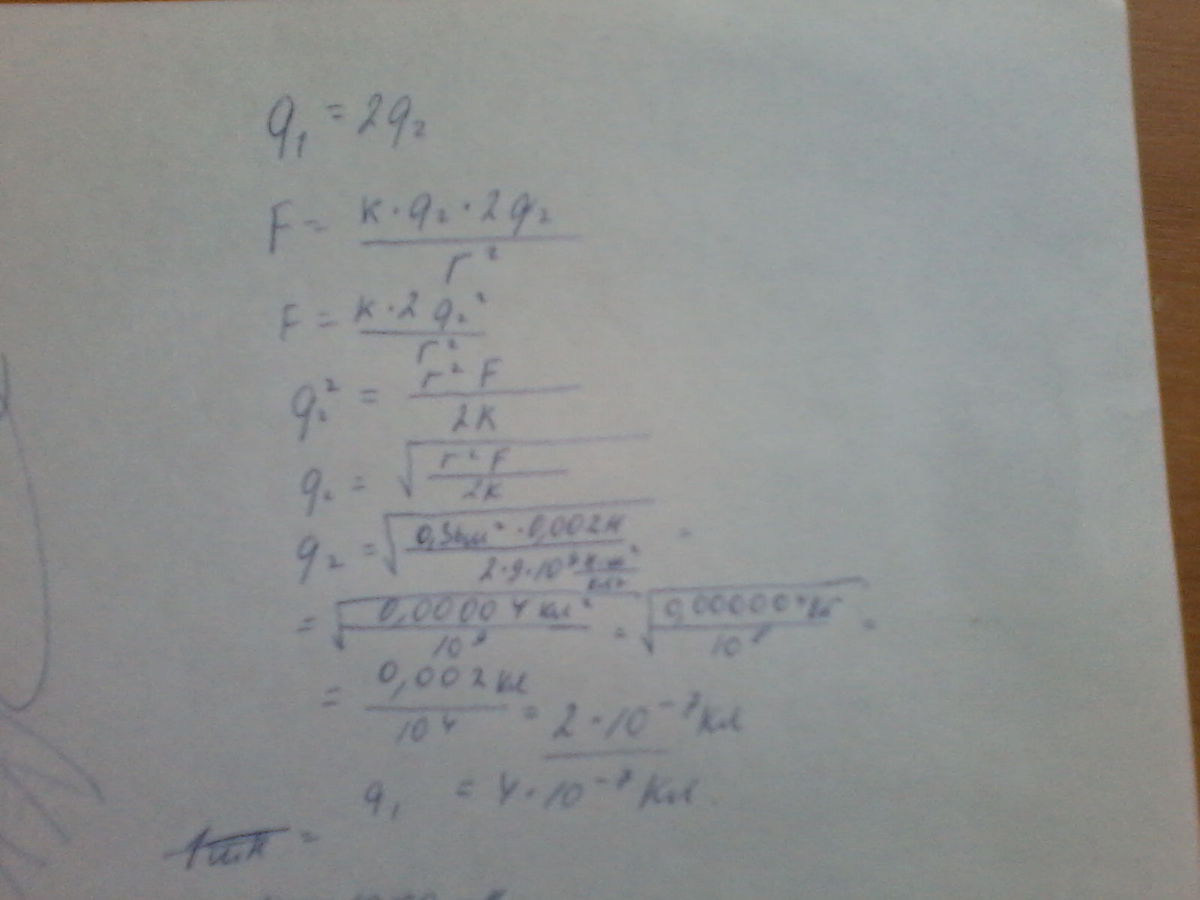 q₁ = 2q₂
F = k·q₂·2q₂ / r²
F = k·2q₂² / r²
q₂² = r²F / 2k
q₂ = √(r²F / 2k)
q₂ = √(0,36м²·0,002Н / 2·9·10⁹ Н·м²/Кл²) =
= √(0,00004 Кл² / 10⁹) = √(0,000004 Кл² / 10⁸) =
= 0,002 Кл / 10⁴ = 2·10⁻⁷ Кл
q₁ = 4·10⁻⁷ Кл.
=